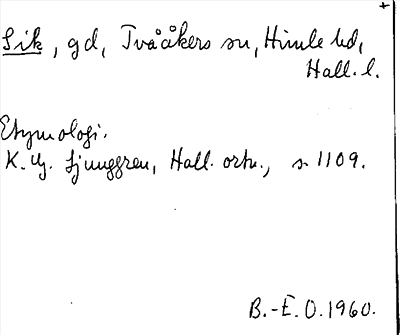 Sik, gd, Tvååkers sn, Himle hd,
Hall. l.
Etymologi.
K. G. Ljunggren, Hall. ortn., s. 1109.
B.-E. O. 1960.